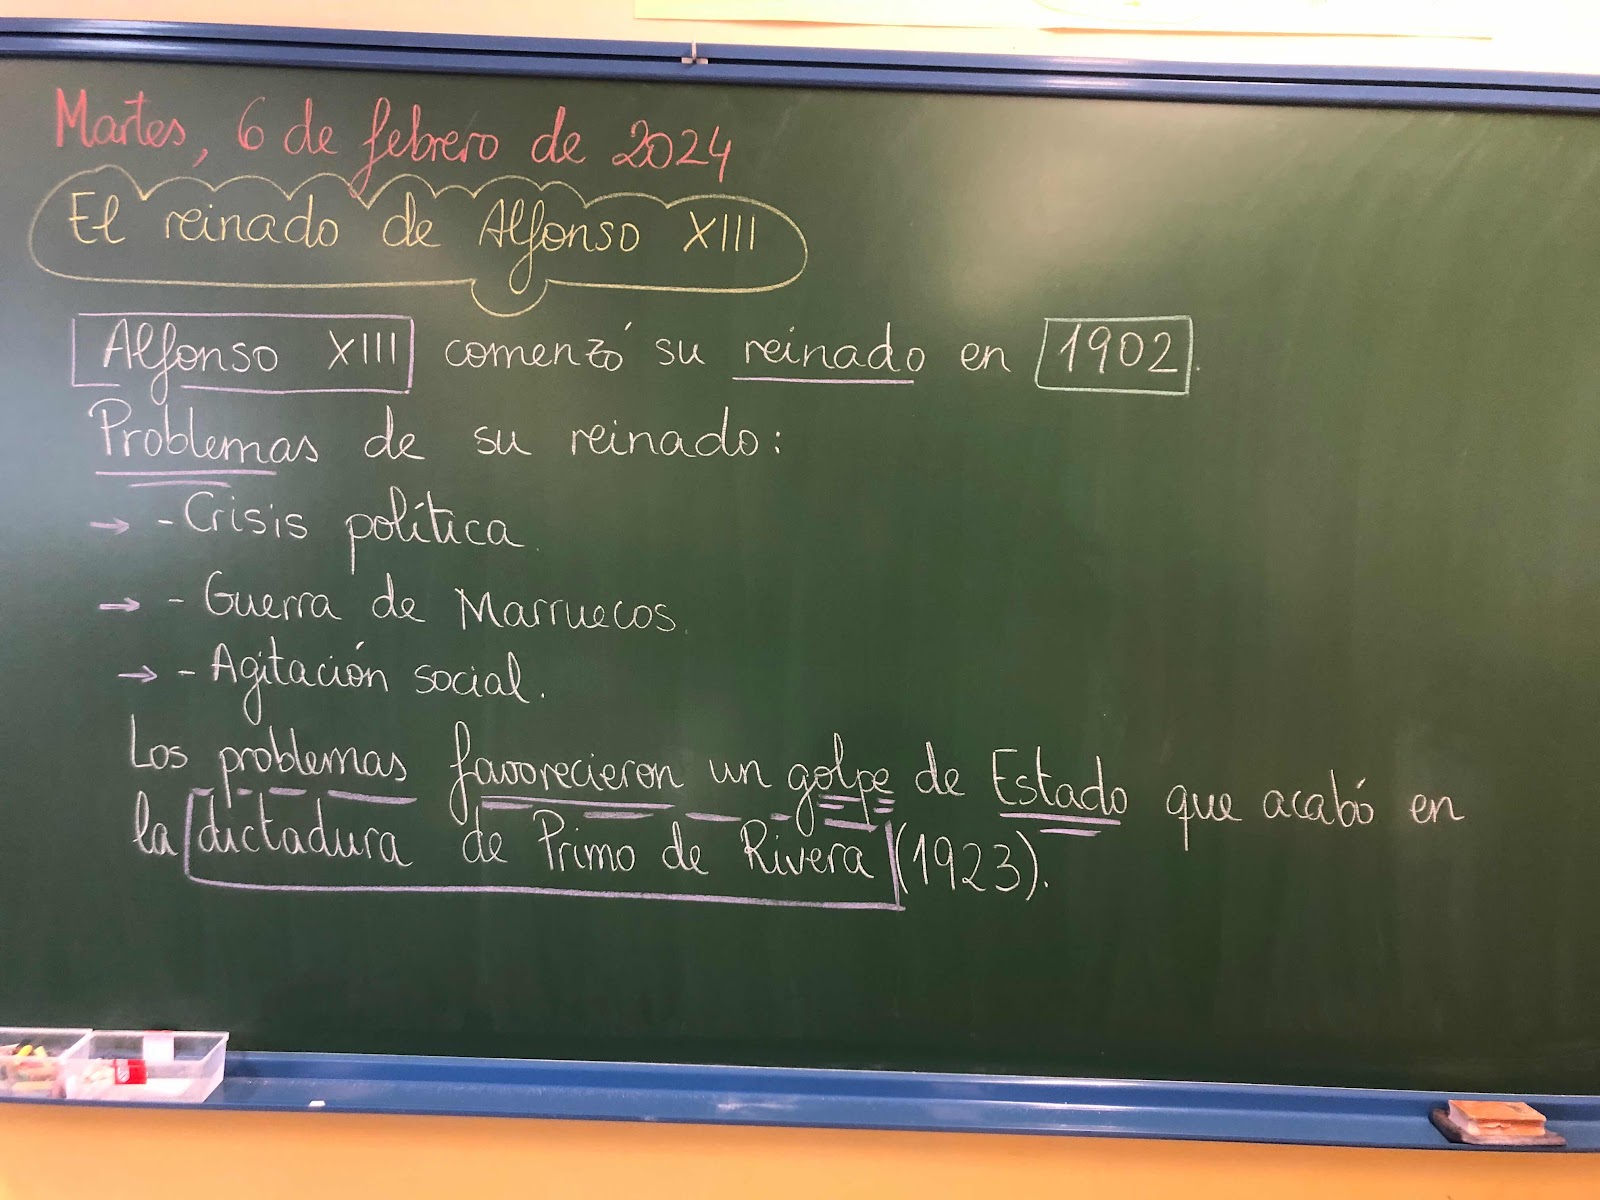 Martes, 6 de febrero de 2024
El reinado de Alfonso XIII
Alfonso XIII comenzó su reinado en 1902.
Problemas de su reinado:
→ - Crisis política.
→ - Guerra de Marruecos.
→ - Agitación social.
Los problemas favorecieron un golpe de Estado que acabó en
la dictadura de Primo de Rivera (1923).